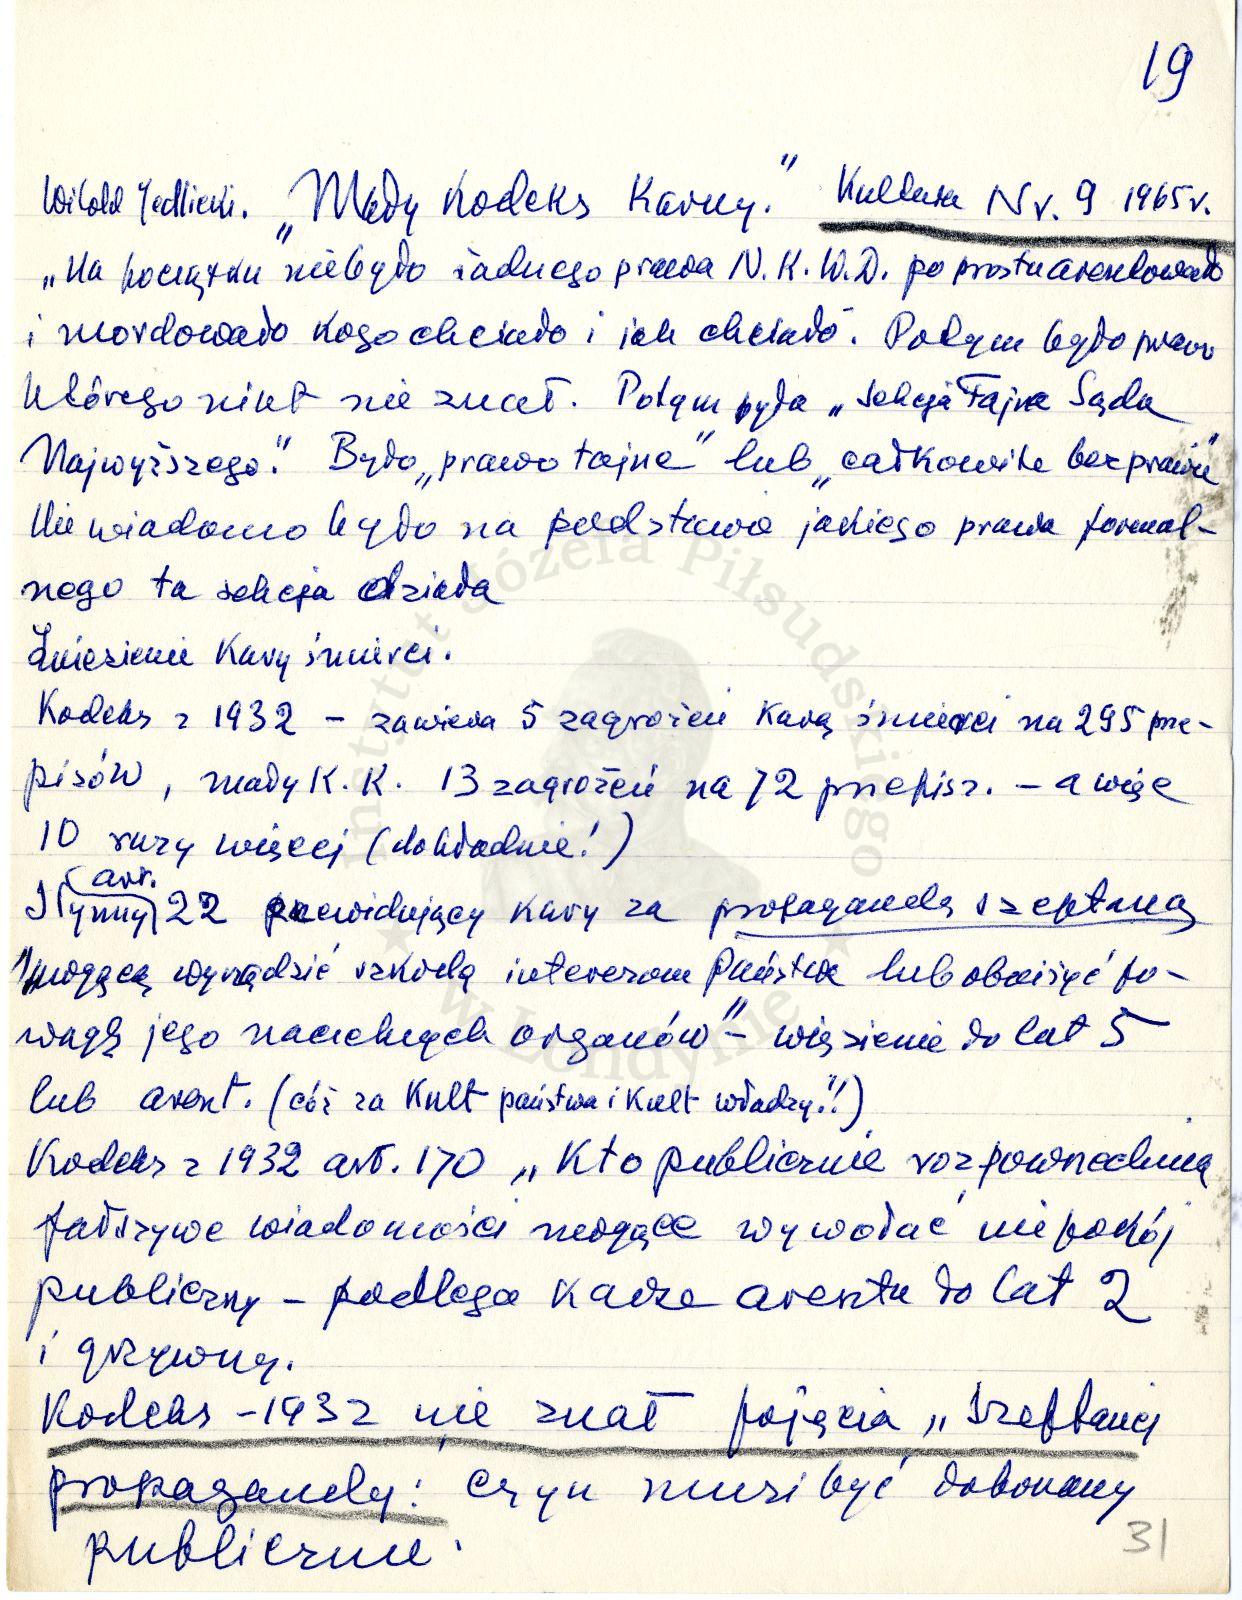 19
Witold Jedlicki. "Mały Kodeks Karny." Kultura Nr. 9 1965r.
„Na początku niebyło żadnego prawa N.K.W.D. po prostu aresztowało
i mordowało kogo chciało i jak chciało. Potym było prawo
którego nikt nie znał. Potym była „sekcja Tajna Sądu
Najwyższego." Było „prawo tajne" lub „całkowite bezprawie"
Nie wiadomo było na podstawie jakiego prawa formal-
nego ta sekcja działa
Zniesienie Kary śmierci.
Kodeks z 1932 – zawiera 5 zagrożeń Karą śmierci na 295 prze-
pisów, mały K.K. 13 zagrożeń na 72 przepisz. – a więc
10 razy więcej (dokładnie!)
Słynny art. 22 przewidujący kary za propagandę szeptaną
"mogącą wyrządzić szkodę interesom Państwa lub obniżyć po-
wagę jego naczelnych organów" – więzienie do lat 5
lub areszt. (cóż za Kult państwa i Kult władzy!!)
Kodeks z 1932 art. 170 „Kto publicznie rozpowszechnia
fałszywe wiadomości mogące wywołać niepokój
publiczny – podlega karze aresztu do lat 2
i grzywny.
Kodeks – 1932 nie znał pojęcia „szeptanej
propagandy: czyn musi być dokonany
publicznie.
31
Instytut Józefa Piłsudskiego
w Londynie